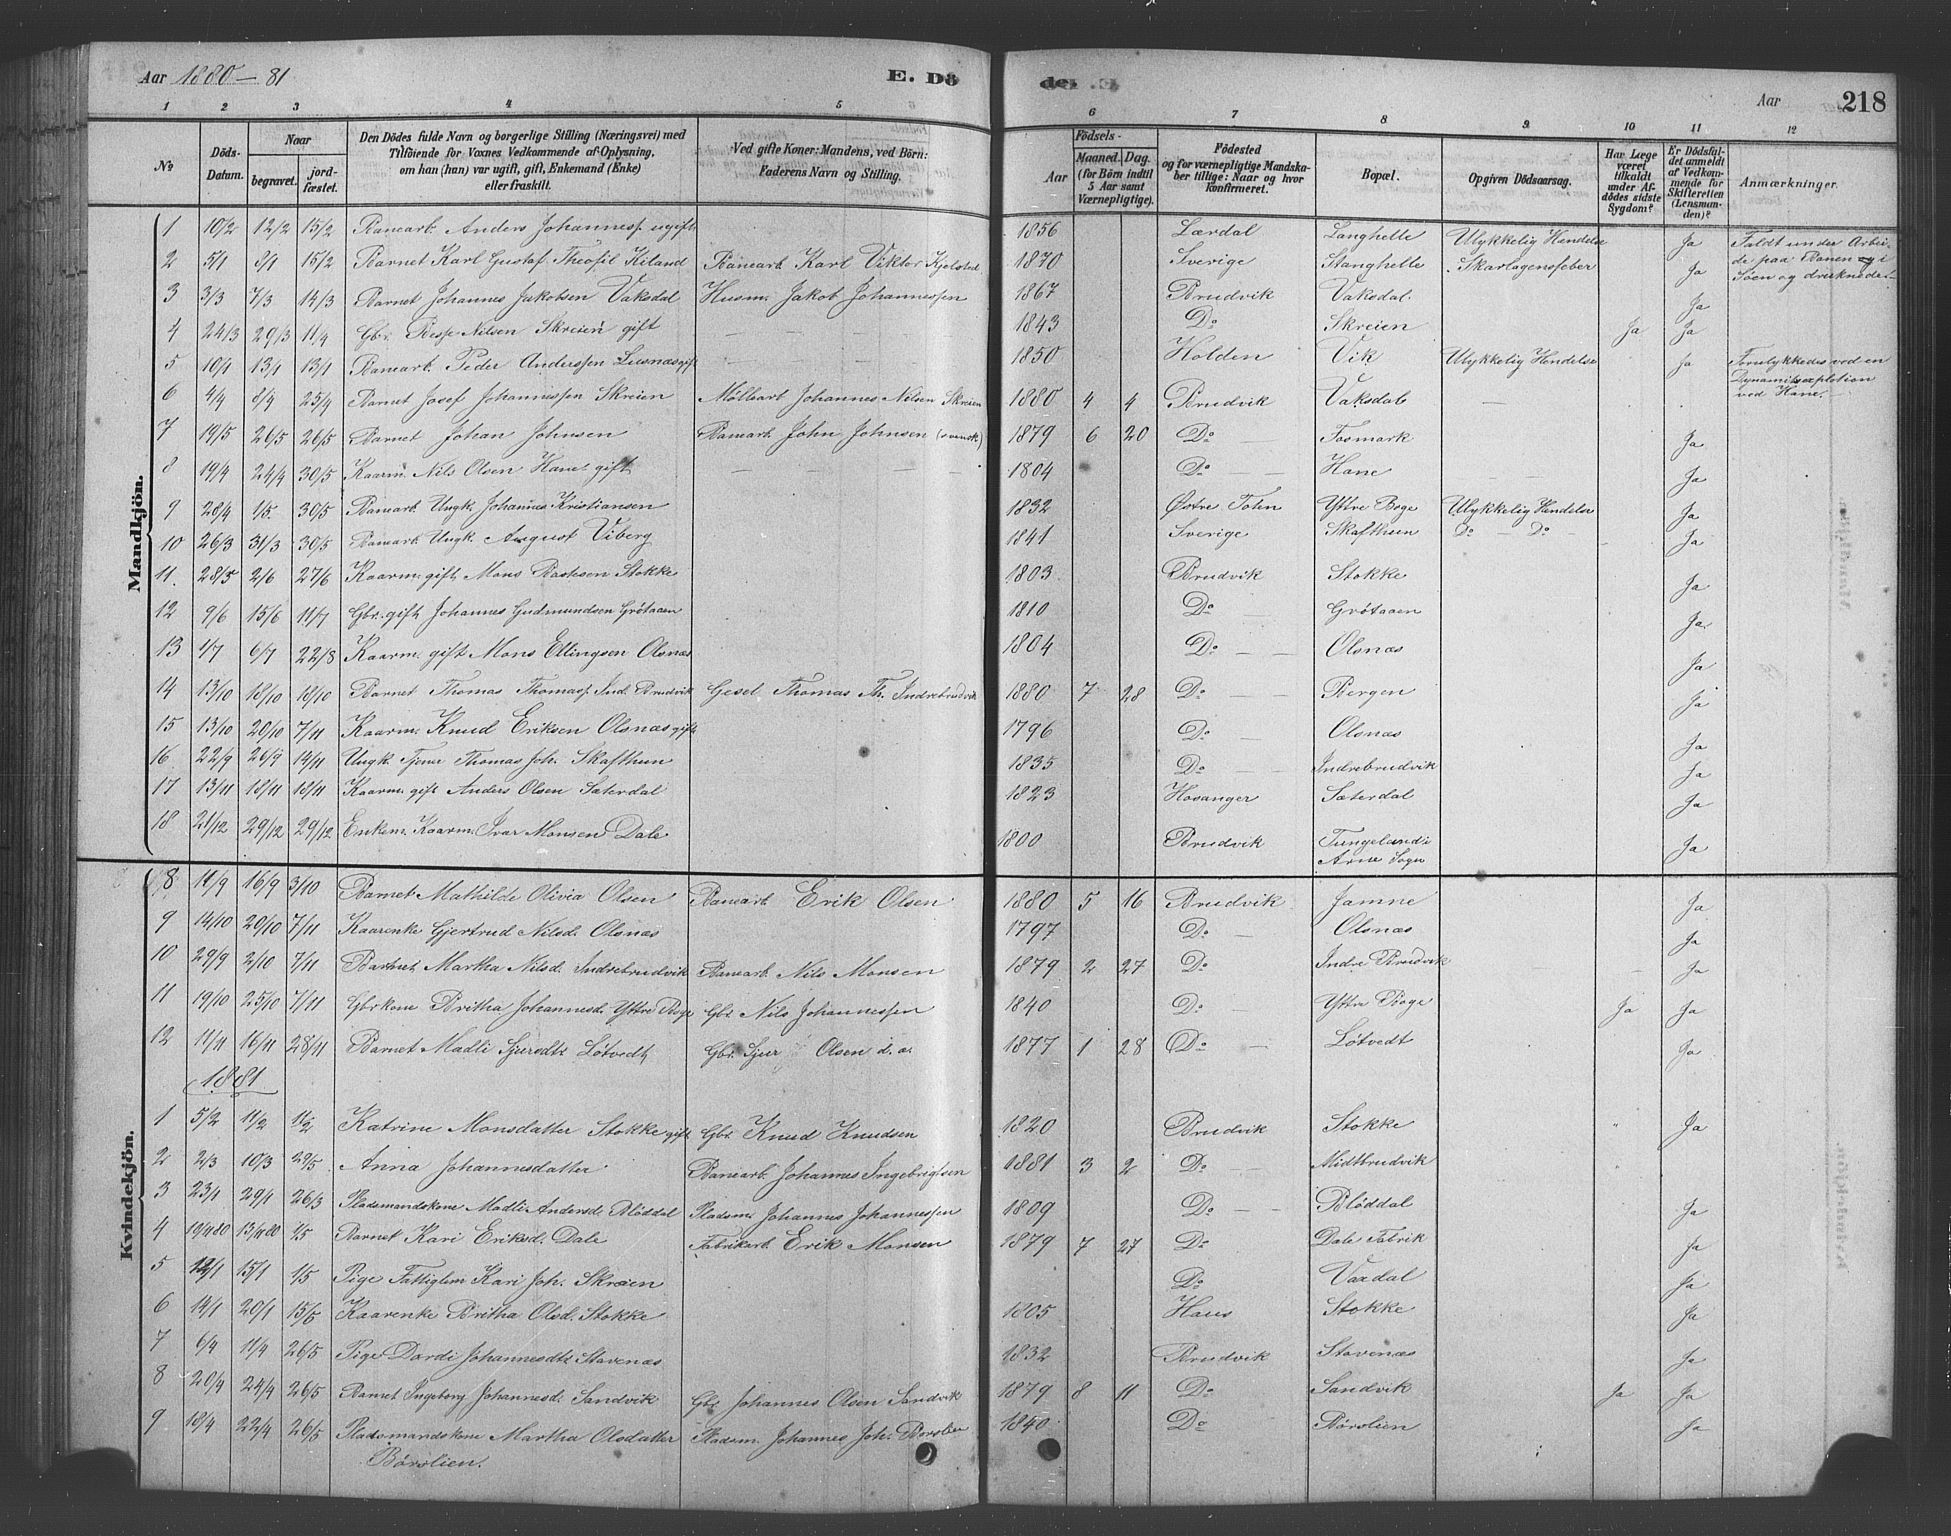 Aar 1880 - 81
E. Dö
den E.
Aar 218
1 2 3 4 5 6 7 8 9 10 11 12
No
Döds-Datum.
Naar
begravet. jordfæstet.
Den Dödes fulde Navn og borgerlige Stilling (Næringsvei) med
Tilföiende for Voxnes Vedkommende af Oplysning,
om han (hun) var ugift, gift, Enkemand (Enke)
eller fraskilt.
Ved gifte Koner: Mandens, ved Börn:
Faderens Navn og Stilling.
Födsels-
Aar Maaned. Dag.
(for Börn indtil
5 Aar samt
Værnepligtige).
Födested
og for værnepligtige Mandskaber tillige: Naar og hvor
konfirmeret.
Bopæl.
Opgiven Dödsaarsag.
Har Læge
været
tilkaldt
under Afdödes sidste
Sygdom?
Er Dödsfaldet anmeldt
af Vedkommende for
Skifteretten
(Lensmanden)?
Anmærkninger.
Mandkjön.
1 10/2 12/2 15/2 Banearb. Anders Johanness. ugift 1856 Lærdal Langhelle Ulykkelig Hendelse Ja Faldt under Arbeide paa Banen i Søen og druknede
2 5/1 8/1 15/2 Barnet Karl Gustaf Theofil Kiland Banearb. Karl Viktor Kjelsted 1870 Sverige Stanghelle Skarlagensfeber Ja
3 3/3 7/3 14/3 Barnet Johannes Jakobsen Vaksdal Husm. Jakob Johannessen 1867 Brudvik Vaksdal. Ja
4 24/3 29/3 11/4 Gbr. Nilsen Skreien gift 1843 Do Skreien Ja Ja
5 10/1 13/1 13/1 Banearb. Peder Anderssen gift 1850 Holden Vik Ulykkelig Hendelse Ja Forulykkedes ved en Dynamitexplotion ved Hane.
6 4/4 8/4 25/4 Barnet Josef Johannessen Skreien Møllearb Johannes Nilsen Skreien 1880 4 4 Brudvik Vaksdal
7 19/5 26/5 26/5 Barnet Johan Johnsen Banearb. John Johnsen (svensk) 1879 6 20 Do Fosmark Ja
8 19/4 24/4 30/5 Kaarm. Nils Olsen Hane gift 1804 Do Hane Ja
9 28/4 1/5 30/5 Banearb. Ungk. Johannes Kristiansen 1832 Østre Tohn Yttre Boge Ulykkelig Hendelse Ja
10 26/3 31/3 30/5 Banearb. Ungk. August Viberg 1841 Sverige Skafthun Do Do Ja
11. 28/5 2/6 27/6 Kaarm. gift Mons Stokke 1803 Brudvik Stokke Ja
12 9/6 15/6 11/7 Gbr. gift Johannes Gudmundsen Grötaaen 1810 Do Grötaaen Ja
13 1/7 6/7 22/8 Kaarm. gift Mons Ellingsen Olsnæs 1804 Do Olsnæs Ja
14 13/10 18/10 18/10 Barnet Thomas Thomass. Ind. Brudvik Gesel Thomas Th. Indrebrudvik 1880 7 28 Do Bergen Ja
15 13/10 20/10 7/11 Kaarm. Knud Eriksen Olsnæs gift 1796 Do Olsnæs Ja
16 22/9 26/9 14/11 Ungk. Tjener Thomas Joh. Skafthun 1835 Do Indrebrudvik Ja
17 13/11 18/11 18/11 Kaarm. gift Anders Olsen Sæterdal 1823 Hosanger Sæterdal Ja
18 21/12 29/12 29/12 Enkem. Kaarm. Ivar Monsen Dale 1800 Brudvik Tungeland i Arne Sogn Ja
Kvindekjön.
8 11/9 16/9 3/10 Barnet Mathilde Olivia Olsen Banearb. Erik Olsen 1880 5 16 Brudvik Jamne Ja
9 14/10 20/10 7/11 Kaarenke Gjertrud Nilsd. Olsnæs 1797 Do Olsnæs Ja
10 29/9 2/10 7/11 Barnet Martha Nilsd. Indrebrudvik Banearb. Nils Monsen 1879 2 27 Do Indre Brudvik Ja
11 19/10 25/10 7/11 Gbrkone Britha Johannesd. Yttre Boge Gbr. Nils Johannessen 1840 Do Yttre Boge Ja Ja
12 11/11 16/11 28/11 Barnet Madli Sjursdtr Løtvedt Gbr. Sjur Olsen d. a. 1877 1 28 Do Løtvedt Ja
1881
1 5/2 11/2 11/2 Katrine Monsdatter Stokke gift Gbr. Knud Knudsen 1820 Brudvik Stokke Ja
2 2/3 10/3 29/5 Anna Johannesdatter Banearb. Johannes Ingebrigtsen 1881 3 2 Do Midtbrudvik
3 23/1 29/1 26/3 Pladsmandskone Madli Andersd. Bløddal Pladsm. Johannes Johannessen 1809 Do Bløddal Ja
4 1/5 Barnet Kari Eriksd. Dale Fabrikarb. Erik Monsen 1879 7 27 Do Dale Fabrik Ja
5 12/1 15/1 1/5 Pige Fattiglem Kari Joh. Skreien Do Vaxdal Ja
6 14/1 20/1 15/5 Kaarenke Britha Olsd. Stokke 1805 Haus Stokke Ja
7 6/4 11/4 26/5 Pige Dordi Johannesdtr Stavenæs 1832 Brudvik Stavenæs Ja
8 20/4 24/4 26/5 Barnet Ingeborg Johannesd. Sandvik Gbr. Johannes Olsen Sandvik 1879 8 11 Do Sandvik Ja Ja
9 18/4 22/4 26/5 Pladsmandskone Martha Olsdatter Börslien. Pladsm. Johannes Joh. Börslien 1840 Do Börslien Ja